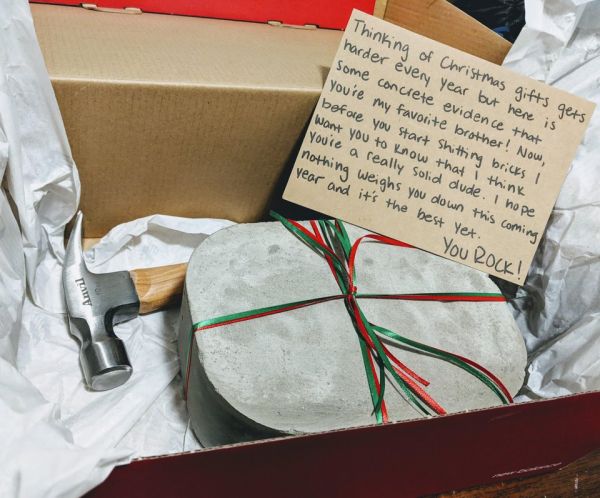 Thinking of Christmas gifts gets
harder every year but here is
some concrete evidence that
you're my favorite brother! Now,
before you start shitting bricks I
want you to know that I think
you're a really solid dude. I hope
nothing weighs you down this coming
year and it's the best yet.
You ROCK!
new balance